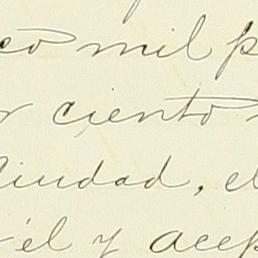 co mil p
r ciento
Ciudad, el
él y acep